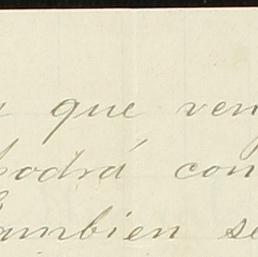 que ven
podrá con
Tambien se